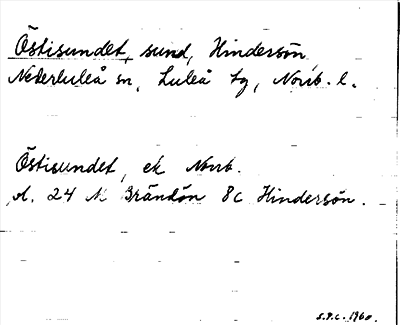 Östisundet, sund, Hindersön,
Nederluleå sn, Luleå tg, Norrb. l.
Östisundet, ek Norrb.
bl. 24 M Brändön 8c Hindersön.
S.P.C. 1960.